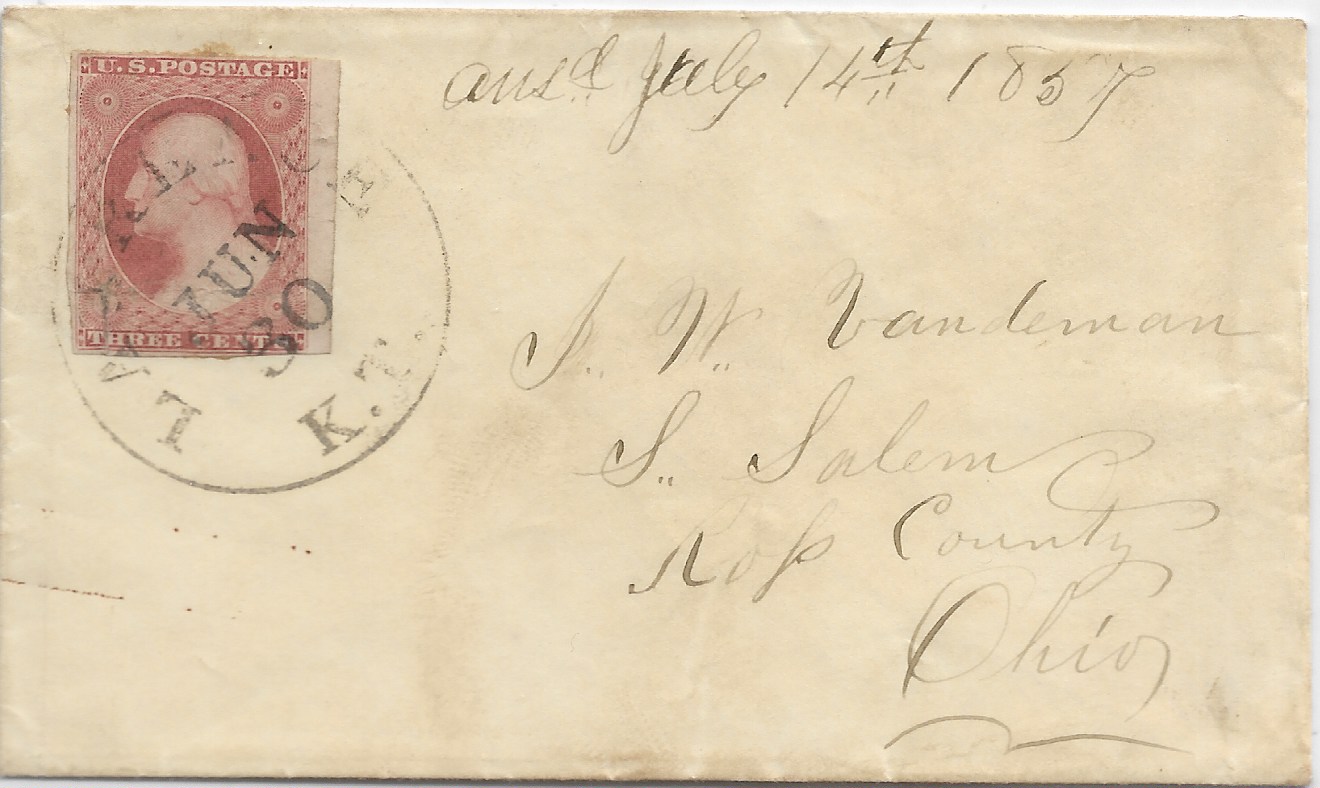 U.S. POSTAGE
THREE CENTS
LAWRENCE K.T.
JUN
30
ansd July 14th 1857
J. W. Vandeman
S. Salem
Ross County
Ohio